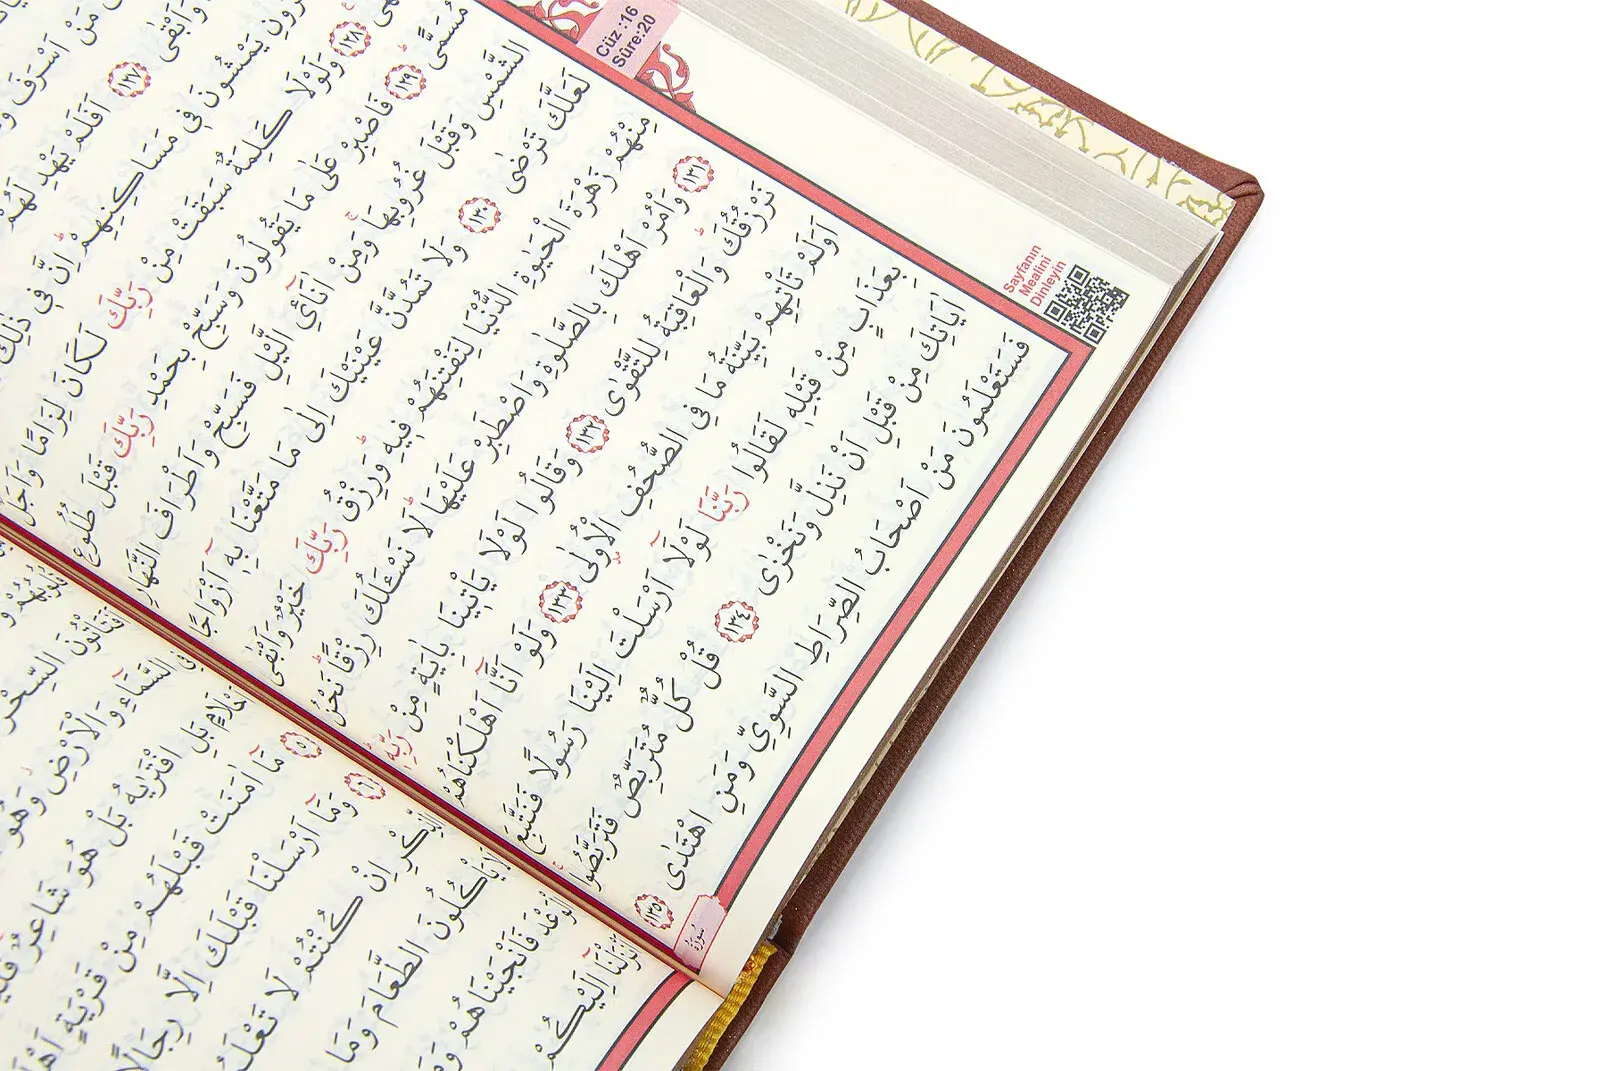 Cüz :16
Sûre:20
Sayfanın
Mealini
Dinleyin
مَنْ اَسْرَفَ
وَاَبْقٰى ١٢٧ اَفَلَمْ يَهْدِ لَهُمْ
يَمْشُونَ فِى مَسَاكِنِهِمْ اِنَّ فِى ذٰلِكَ
١٢٨ وَلَوْلَا كَلِمَةٌ سَبَقَتْ مِنْ رَبِّكَ لَكَانَ لِزَامًا وَاَجَلٌ
مُسَمًّى ١٢٩ فَاصْبِرْ عَلٰى مَا يَقُولُونَ وَسَبِّحْ بِحَمْدِ رَبِّكَ قَبْلَ طُلُوعِ
الشَّمْسِ وَقَبْلَ غُرُوبِهَا وَمِنْ اٰنَائِ الَّيْلِ فَسَبِّحْ وَاَطْرَافَ النَّهَارِ
لَعَلَّكَ تَرْضٰى ١٣٠ وَلَا تَمُدَّنَّ عَيْنَيْكَ اِلٰى مَا مَتَّعْنَا بِهٖ اَزْوَاجًا
مِنْهُمْ زَهْرَةَ الْحَيٰوةِ الدُّنْيَا لِنَفْتِنَهُمْ فٖيهِ وَرِزْقُ رَبِّكَ خَيْرٌ وَاَبْقٰى
١٣١ وَأْمُرْ اَهْلَكَ بِالصَّلٰوةِ وَاصْطَبِرْ عَلَيْهَا لَا نَسْـَٔلُكَ رِزْقًا نَحْنُ
نَرْزُقُكَ وَالْعَاقِبَةُ لِلتَّقْوٰى ١٣٢ وَقَالُوا لَوْلَا يَأْتٖينَا بِاٰيَةٍ مِنْ رَبِّهٖ
اَوَلَمْ تَأْتِهِمْ بَيِّنَةُ مَا فِى الصُّحُفِ الْاُولٰى ١٣٣ وَلَوْ اَنَّا اَهْلَكْنَاهُمْ
بِعَذَابٍ مِنْ قَبْلِهٖ لَقَالُوا رَبَّنَا لَوْلَا اَرْسَلْتَ اِلَيْنَا رَسُولًا فَنَتَّبِعَ
اٰيَاتِكَ مِنْ قَبْلِ اَنْ نَذِلَّ وَنَخْزٰى ١٣٤ قُلْ كُلٌّ مُتَرَبِّصٌ فَتَرَبَّصُوا
فَسَتَعْلَمُونَ مَنْ اَصْحَابُ الصِّرَاطِ السَّوِيِّ وَمَنِ اهْتَدٰى ١٣٥
سُورَةُ
اَفَتَأْتُونَ السِّحْرَ
فِى السَّمَاءِ وَالْاَرْضِ وَهُوَ
اَحْلَامٍ بَلِ افْتَرٰيهُ بَلْ هُوَ شَاعِرٌ
٥ مَا اٰمَنَتْ قَبْلَهُمْ مِنْ قَرْيَةٍ
٦ وَمَا اَرْسَلْنَا قَبْلَكَ اِلَّا رِجَالًا
الذِّكْرِ اِنْ كُنْتُمْ لَا
لَا يَأْكُلُونَ الطَّعَامَ وَمَا
الْوَعْدَ فَاَنْجَيْنَاهُمْ
اَنْزَلْنَا اِلَيْكُمْ